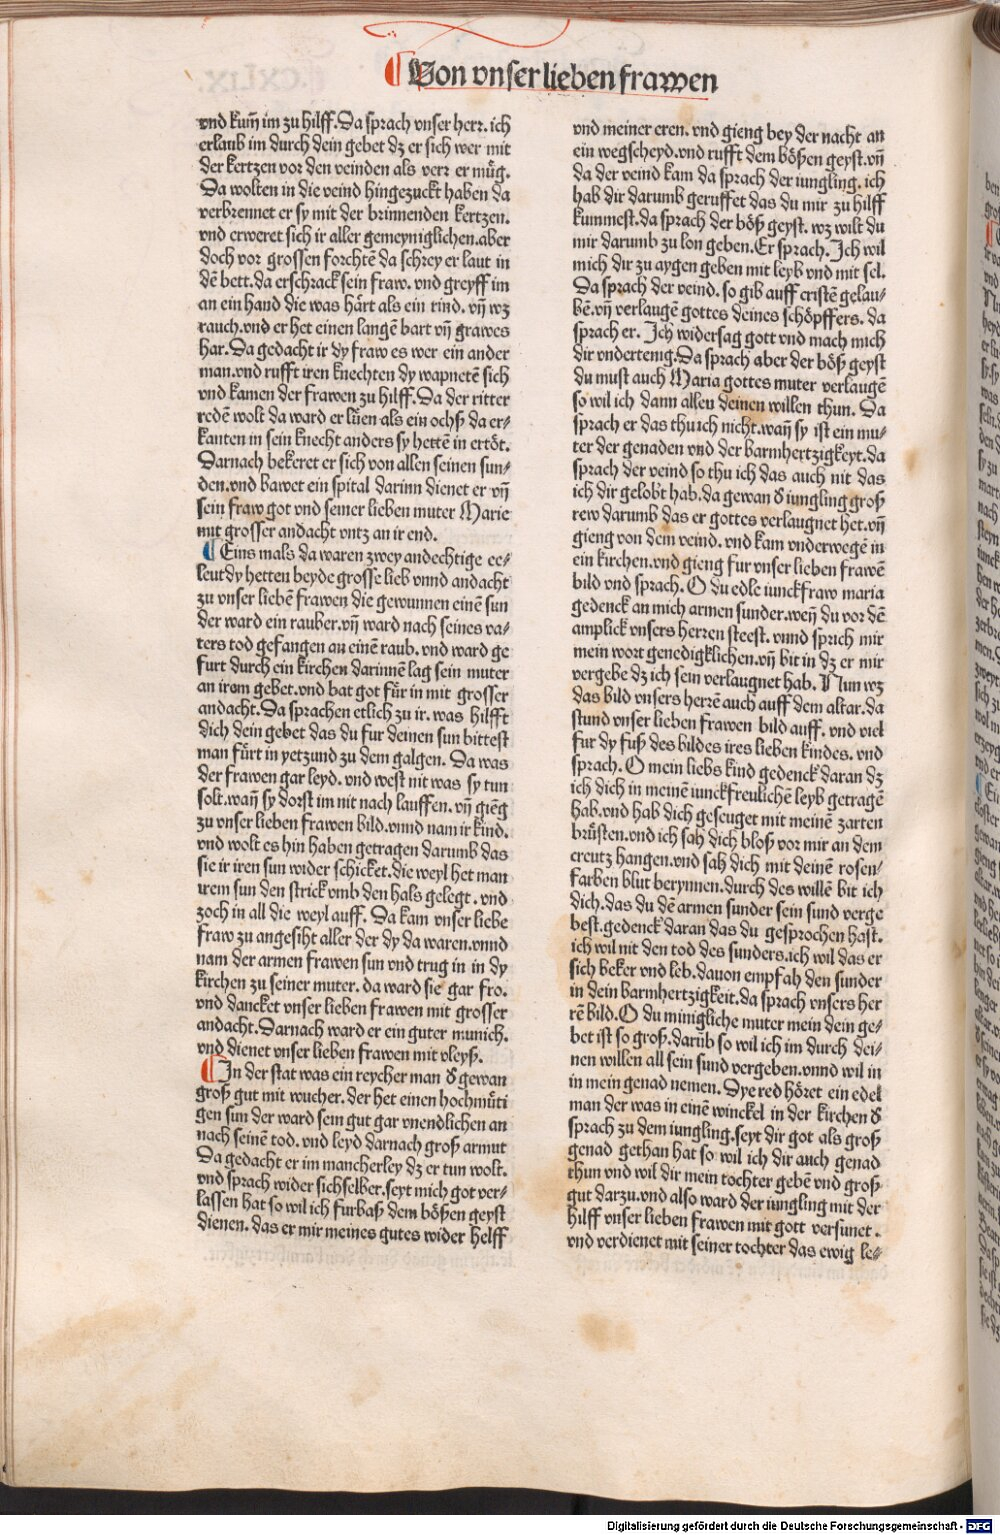 Von vnser lieben frawen
vnd kum̄ im zu hilff. Da sprach vnser herr. ich
erlaub im durch dein gebet dz er sich wer mit
der kertzen vor den veinden als verr er mu̇g.
Da wolten in die veind hingezuckt haben da
verbrennet er sy mit der brinnenden kertzen.
vnd erweret sich ir aller gemeyniglichen. aber
doch vor grossen forchtē da schrey er laut in
dē bett. da erschrack sein fraw. vnd greyff im
an ein hand die was hårt als ein rind. vn̄ wz
rauch. vnd er het einen langē bart vn̄ grawes
har. Da gedacht ir dy fraw es wer ein ander
man. vnd rufft iren knechten dy wapnetē sich
vnd kamen der frawen zu hilff. Da der ritter
redē wolt da ward er lu̇en als ein ochß da er⸗
kanten in sein knecht anders sy hettē in ertöt.
Darnach bekeret er sich von allen seinen sun⸗
den. vnd bawet ein spital darinn dienet er vn̄
sein fraw got vnd seiner lieben muter Marie
mit grosser andacht vntz an ir end.
¶ Eins mals da waren zwey andechtige ee⸗
leut dy hetten beyde grosse lieb vnnd andacht
zu vnser liebē frawen die gewunnen einē sun
der ward ein rauber. vn̄ ward nach seines va⸗
ters tod gefangen an einē raub. vnd ward ge
furt durch ein kirchen darinnē lag sein muter
an irem gebet. vnd bat got fu̇r in mit grosser
andacht. Da sprachen etlich zu ir. was hilfft
dich dein gebet das du fur deinen sun bittest
man fu̇rt in yetzund zu dem galgen. Da was
der frawen gar leyd. vnd west nit was sy tun
solt. wan̄ sy dorst im nit nach lauffen. vn̄ giēg
zu vnser lieben frawen bild. vnnd nam ir kind.
vnd wolt es hin haben getragen darumb das
sie ir iren sun wider schicket. die weyl het man
irem sun den strick vmb den hals gelegt. vnd
zoch in all die weyl auff. Da kam vnser liebe
fraw zu angesiht aller der dy da waren. vnnd
nam der armen frawen sun vnd trug in in dy
kirchen zu seiner muter. da ward sie gar fro.
vnd dancket vnser lieben frawen mit grosser
andacht. Darnach ward er ein guter munich.
vnd dienet vnser lieben frawen mit vleyß.
¶ In der stat was ein reycher man d̕ gewan
groß gut mit wucher. der het einen hochmu̇ti
gen sun der ward sein gut gar vnendlichen an
nach seinē tod. vnd leyd darnach groß armut
Da gedacht er im mancherley dz er tun wolt.
vnd sprach wider sich selber. seyt mich got ver⸗
lassen hat so wil ich furbaß dem bösen geyst
dienen. das er mir meines gutes wider helff
vnd meiner eren. vnd gieng bey der nacht an
ein wegscheyd. vnd rufft dem bößen geyst. vn̄
da der veind kam da sprach der iungling. ich
hab dir darumb geruffet das du mir zu hilff
kummest. da sprach der böß geyst. wz wilt du
mir darumb zu lon geben. Er sprach. Ich wil
mich dir zu aygen geben mit leyb vnd mit sel.
Da sprach der veind. so gib auff cristē gelau⸗
bē. vn̄ verlaugē gottes deines schöpffers. da
sprach er. Ich widersag gott vnd mach mich
dir vndertenig. Da sprach aber der böß geyst
du must auch Maria gottes muter verlaugē
so wil ich dann allen deinen willen thun. Da
sprach er das thu ich nicht. wan̄ sy ist ein mu⸗
ter der genaden vnd der barmhertzigkeyt. da
sprach der veind so thu ich das auch nit das
ich dir gelobt hab. da gewan d̕ iungling groß
rew darumb das er gottes verlaugnet het. vn̄
gieng von dem veind. vnd kam vnderwegē in
ein kirchen. vnd gieng fur vnser lieben frawē
bild vnd sprach. O du edle iunckfraw maria
gedenck an mich armen sunder. wen̄ du vor dē
amplick vnsers herren steest. vnnd sprich mir
mein wort genedigklichen. vn̄ bit in dz er mir
vergebe dz ich sein verlaugnet hab. Nun wz
das bild vnsers herrē auch auff dem altar. da
stund vnser lieben frawen bild auff. vnd viel
fur dy fuß des bildes ires lieben kindes. vnd
sprach. O mein liebs kind gedenck daran dz
ich dich in meinē iunckfreulichē leyb getragē
hab. vnd hab dich geseuget mit meinē zarten
bru̇sten. vnd ich sah dich bloß vor mir an dem
creutz hangen. vnd sah dich mit deinē rosen⸗
farben blut berynnen. durch des willē bit ich
dich. das du dē armen sunder sein sund verge
best. gedenck daran das du gesprochen hast.
ich wil nit den tod des sunders. ich wil das er
sich beker vnd leb. dauon empfah den sunder
in dein barmhertzigkeit. da sprach vnsers her
rē bild. O du minigliche muter mein dein ge⸗
bet ist so groß. darūb so wil ich im durch dei⸗
nen willen all sein sund vergeben. vnnd wil in
in mein genad nemen. Dye red höret ein edel
man der was in einē winckel in der kirchen d̕
sprach zu dem iungling. seyt dir got als groß
genad gethan hat so wil ich dir auch genad
thun vnd wil dir mein tochter gebē vnd groß
gut darzu. vnd also ward der iungling mit der
hilff vnser lieben frawen mit gott versunet.
vnd verdienet mit seiner tochter das ewig le⸗
Digitalisierung gefördert durch die Deutsche Forschungsgemeinschaft - DFG